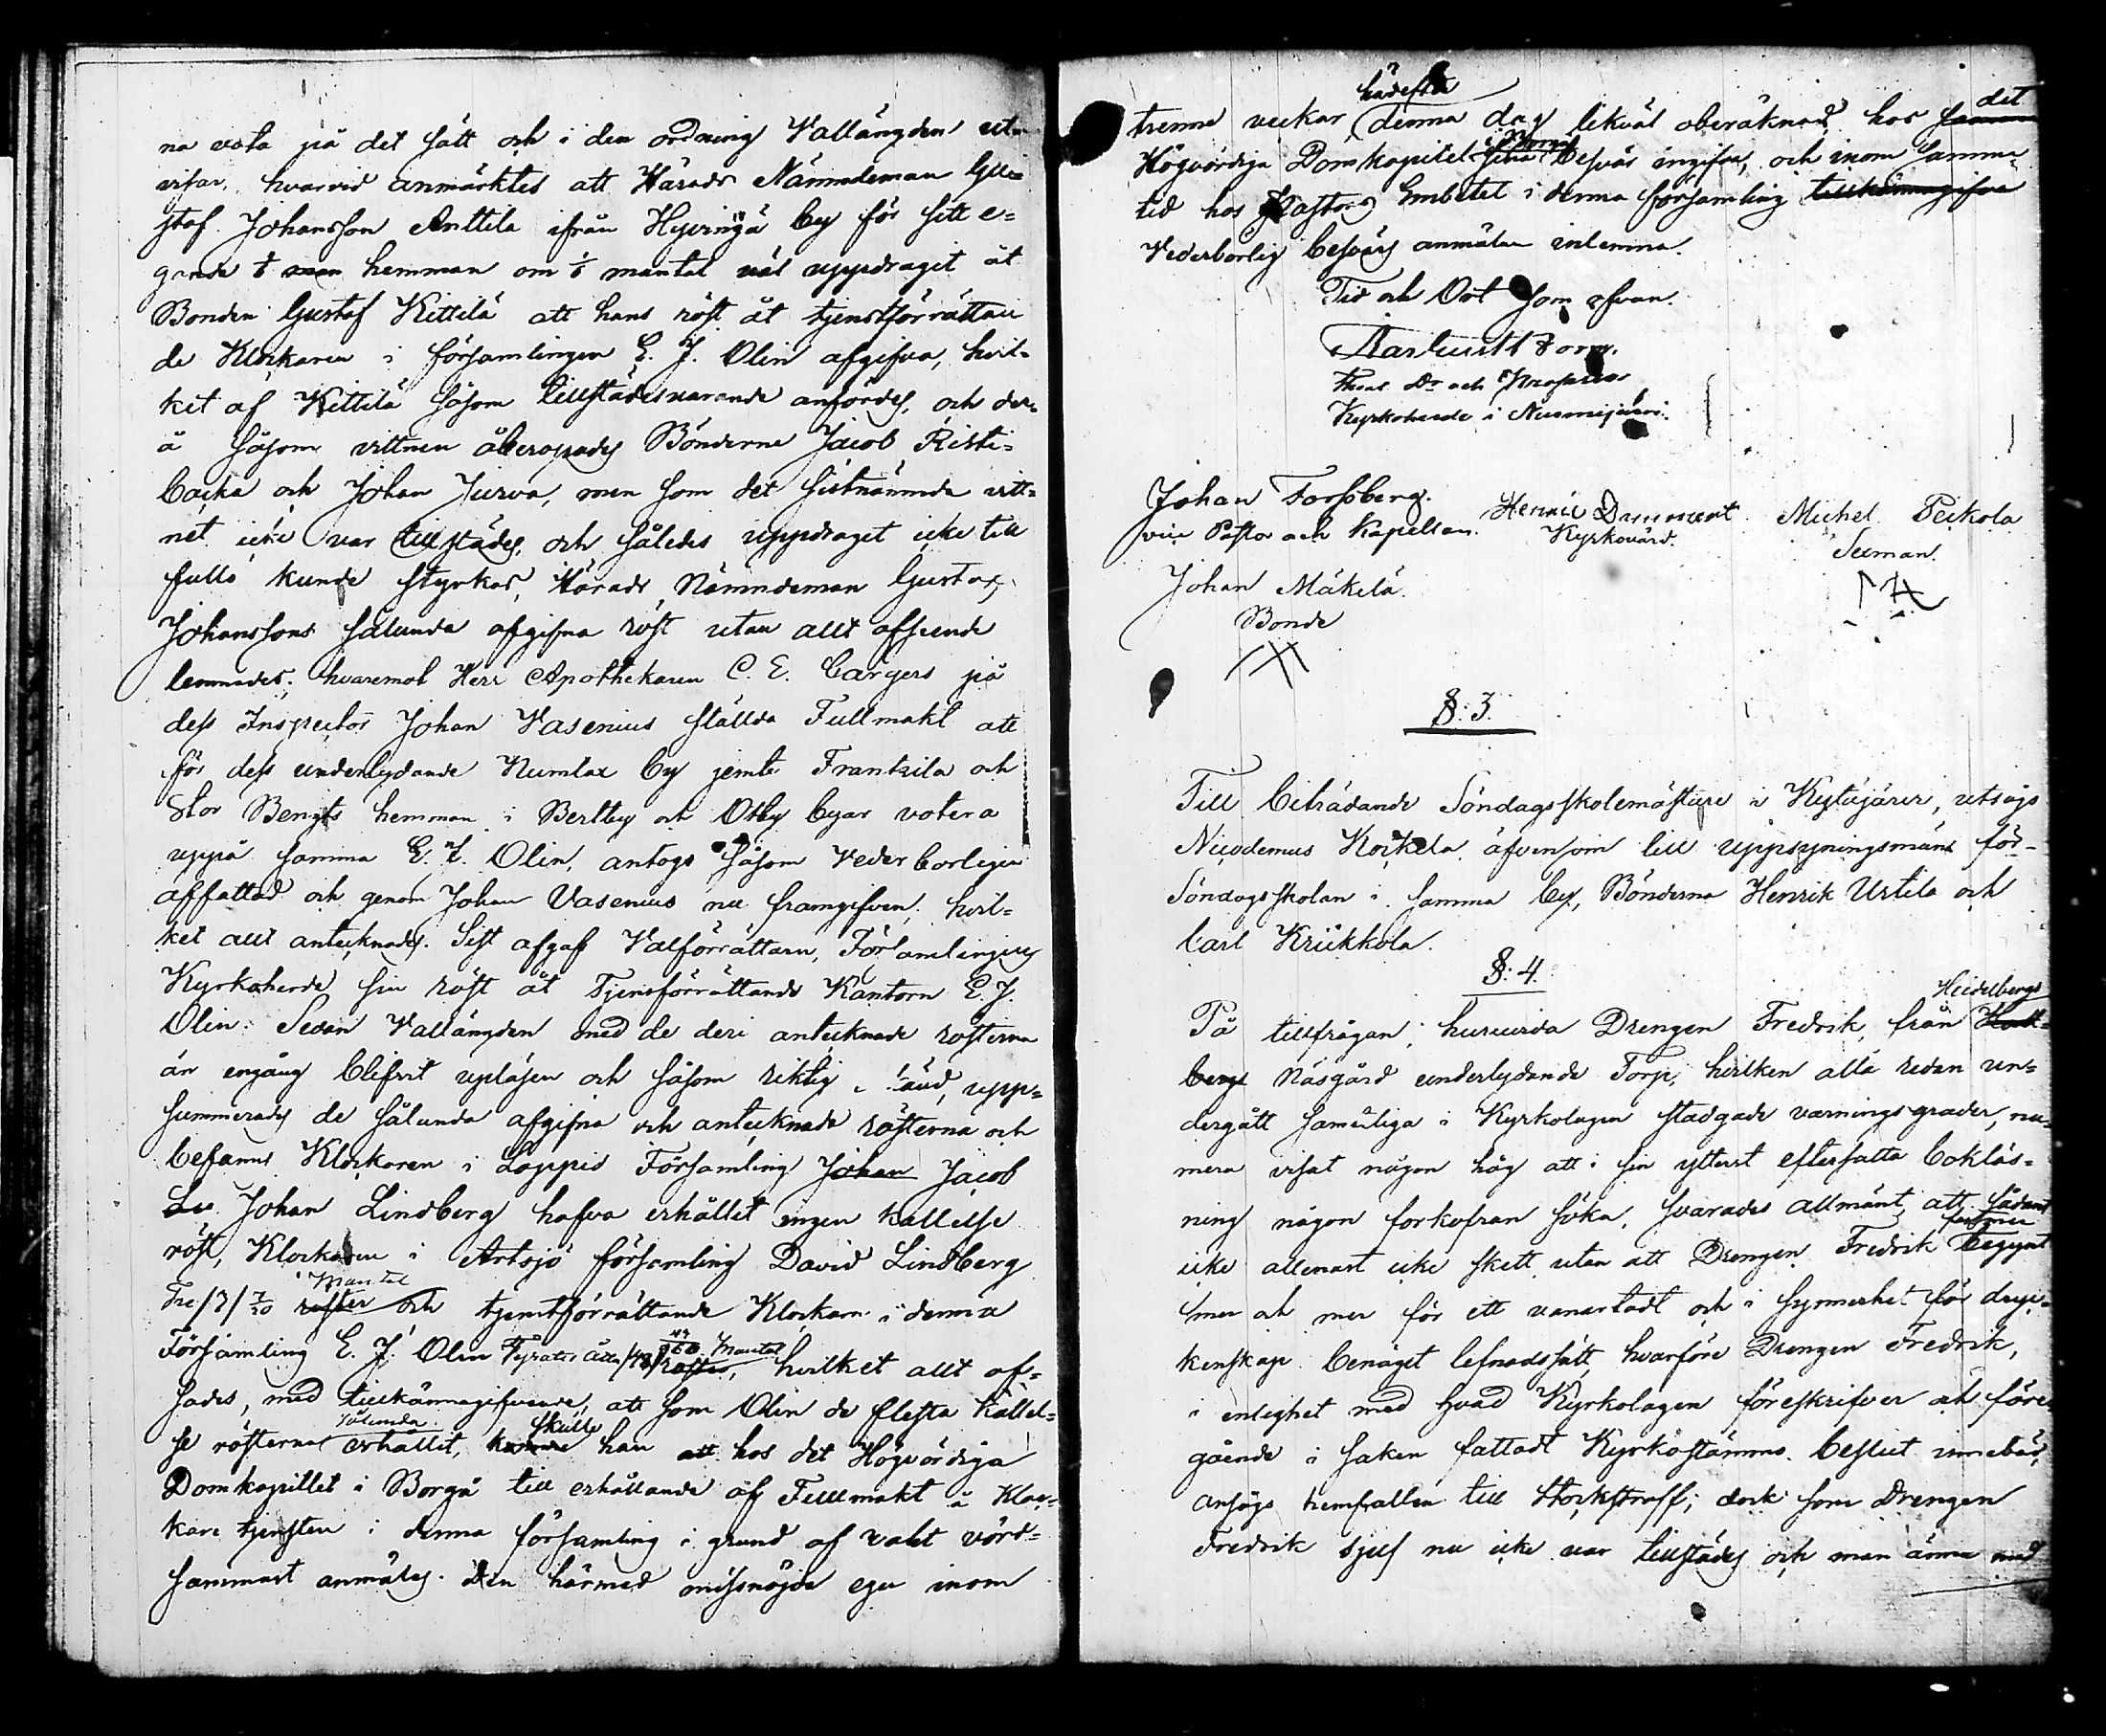 na vota på det sätt och i den ordning Vallängden ut-
visar, hvarvid anmärktes att Härads Nämndeman Gu-
staf Johansson Anttila ifrån Hyvingä by för sitt e-
gande hemman om mantal väl uppdragit åt
Bonden Gustaf Kittilä att hans röst åt tjenstförrättan
de Klockaren i församlingen E. J. Olin afgifva, hvil-
ket af Kittilä såsom tillstädesvarande anfördes, och der-
å såsom vittnen åberopades Bönderne Jacob Risti-
backa och Johan Jurva, men som det sistnämnda vitt-
net icke var tillstädes, och således uppdraget icke till
fullo kunde styrkas, Härads Nämndeman Gustaf
Johanssons sålunda afgifna röst utan allt afseende
lemnades; hvaremot Herr Apothekaren C. E. Bargers på
dess Inspector Johan Vasenius ställda Fullmakt att
för dess underlydande Numlax by jemte Frantsila och
Stor Bengts hemman i Bertby och Otby byar votera
uppå samma E. J. Olin, antogs såsom Vederbörligen
affattad och genom Johan Vasenius nu framgifven, hvil-
ket allt antecknades. Sist afgaf Valförrättaren, Församlingens
Kyrkoherde sin röst åt Tjenstförrättande Kantorn E. J.
Olin. Sedan Vallängden med de deri antecknade rösterna
än engång blifvit uppläsen och såsom riktig upp-
summerades de sålunda afgifna och antecknade rösterna och
befanns Klockaren i Loppis Församling Johan Jacob
Johan Lindberg hafva erhållit ingen kallelse
röst, Klockaren i Artsjö församling David Lindberg
Mantal
Tre /3/ 7/20 röster och tjenstförrättande Klockarn i denna
Mantal
Församling E. J. Olin Fyratio åtta /48/ röster, hvilket allt af-
sades, med tillkännagifvande, att som Olin de flesta kallel-
sålunda skulle
se rösterna erhållit, kunde han att hos det Högvördiga
Domkapitlet i Borgå till erhållande af Fullmakt å Kloc-
kare tjensten i denna församling i grund af valet vörd-
sammast anmälas. Den härmed missnöjde eger inom
härefter det
trenne veckor, denna dag likväl oberäknad, hos samma
i Borgå
Högvördiga Domkapitel sina besvär ingifva, och inom samma
tid hos Pastors Embetet i denna församling tillkännagifva
Vederbörlig besvärs anmälan inlemna.
Tid och Ort som ofvan.
Theol. Dr och Prosten
Kyrkoherde i Nurmijärvi.
Johan Forssberg.
vice Pastor och Kapellan.
Henric Drummert
Kyrkovärd.
Michel Peikola
Sexman.
Johan Mäkelä.
Bonde
§: 3.
Till biträdande Söndagsskolemästare i Kytäjärvi, utsågs
Nicodemus Korkela, äfvensom till uppsyningsmän för
Söndagsskolan i samma by, Bönderna Henrik Urtila och
Carl Krükkola.
§: 4.
Heidelbergs
På tillfrågan, huruvida Drengen Fredrik, från
berg Näsgård underlydande Torp, hvilken alla redan un-
dergått samteliga i Kyrkolagen stadgade varningsgrader, nu-
mera visat någon håg att i sin ytterst eftersatta bokläs-
ning någon förkofran söka, svarades allmänt, att sådant
icke allenast icke skett utan att Drengen Fredrik begynt
mer och mer för ett vanartadt och i synnerhet för dryc-
kenskap benäget lefnadssätt, hvarföre Drengen Fredrik,
i enlighet med hvad Kyrkolagen föreskrifver och före-
gående i saken fattadt Kyrkostämmo beslut innebär,
ansågs hemfallen till Stockstraff; dock som Drengen
Fredrik sjelf nu icke var tillstädes och man ännu med